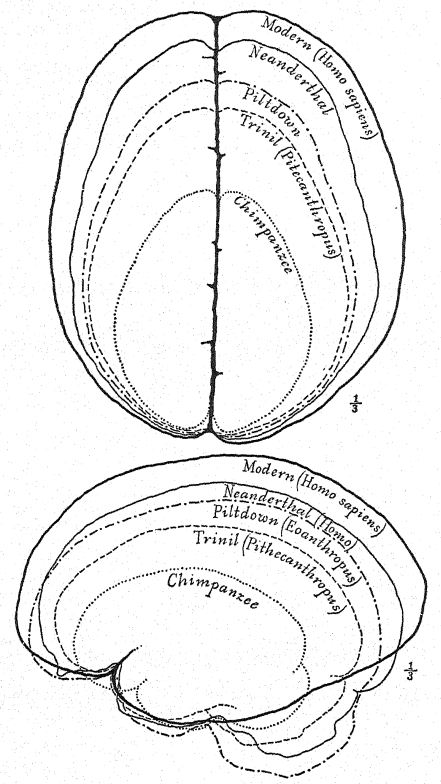 Modern (Homo sapiens)
Neanderthal
Piltdown
Trinil (Pitecanthropus)
Chimpanzee
1/3
Modern (Homo sapiens)
Neanderthal (Homo)
Piltdown (Eoanthropus)
Trinil (Pithecanthropus)
Chimpanzee
1/3